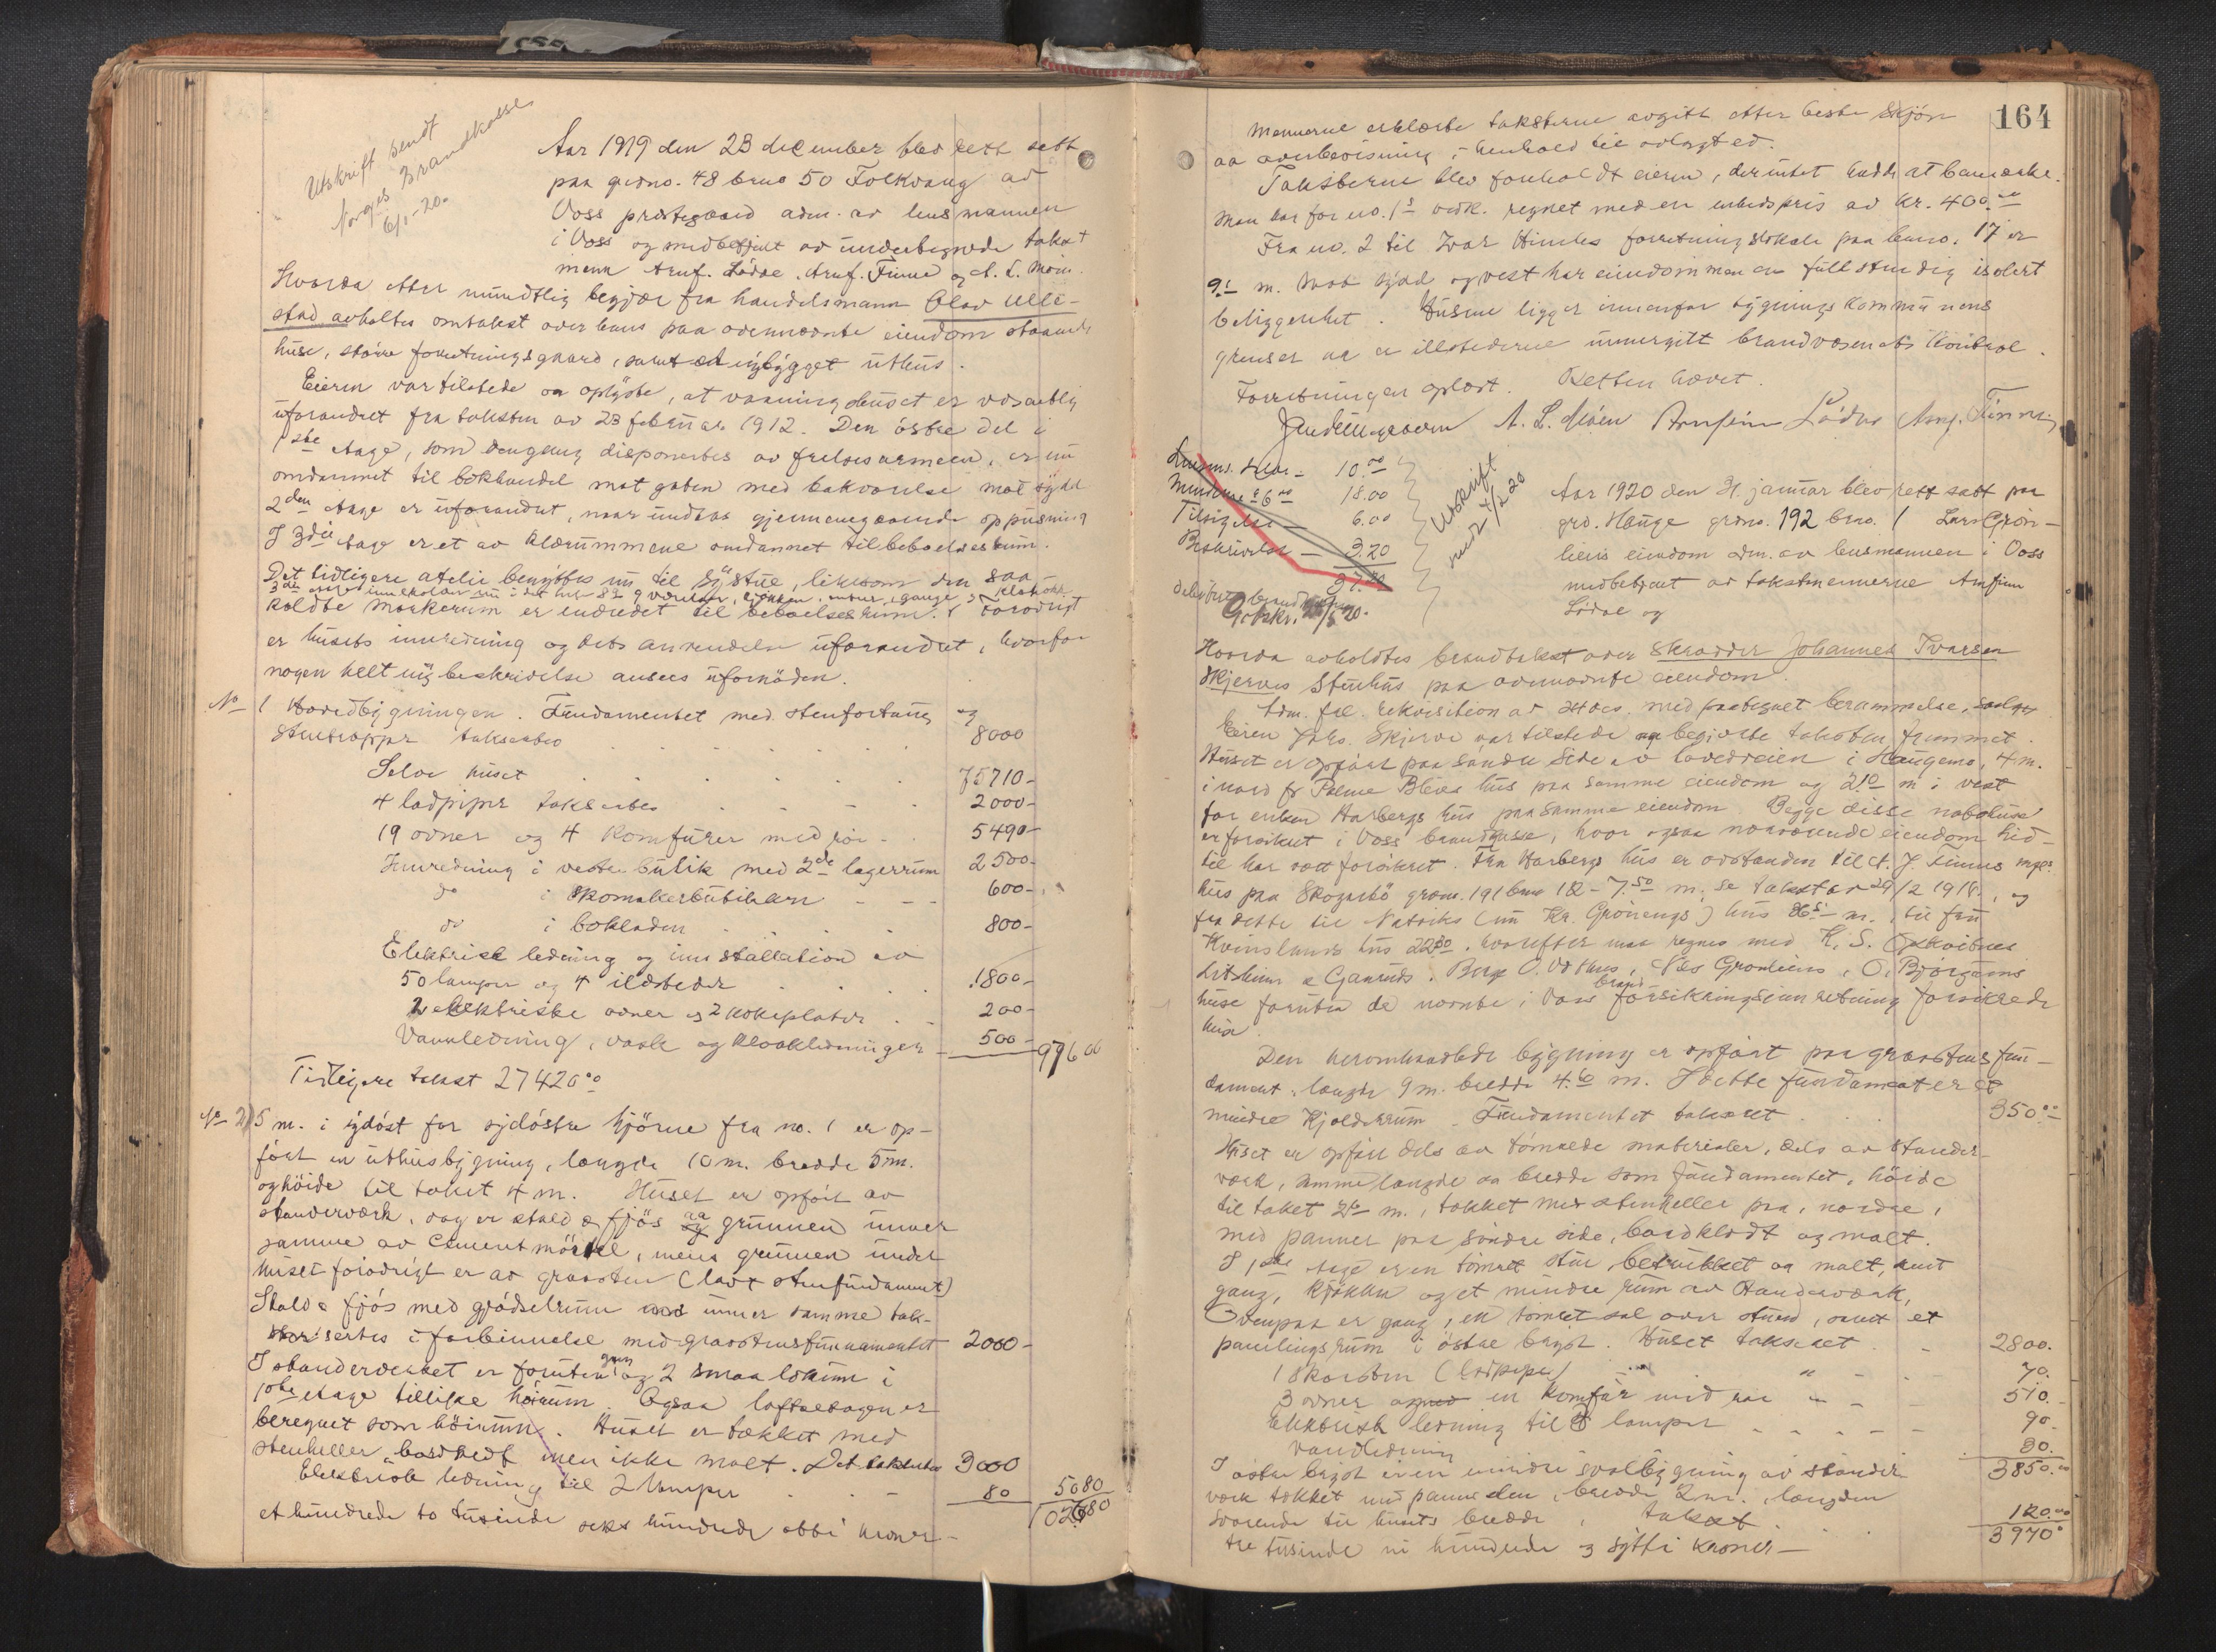 Utskrift sendt
Norges Brandkasse
6/1-20.
Aar 1919 den 23 december blev rett satt
paa gardno. 48 brno 50 Folkvang av
Voss prestegaard adm. av lensmannen
i Voss og medbetjent av undertegnede takst
menn Arnf. Lødve, Arnf. Finne og A. L. Moen.
Hvorda efter mundtlig begjær fra handelsmann Olav Ulle-
stad avholtes omtakst over hans paa ovennævnte eiendom staaende
huse, større forretningsgaard, samt et nybygget uthus.
Eieren var tilstede og oplyste, at vaaningshuset er væsentlig
uforandret fra taksten av 23 februar 1912. Den østre del i
1ste etage, som dengang disponertes av frelsesarmeen, er nu
omdannet til bokhandel mot gaten med bakværelse mot syd
2den etage er uforandret, naar undtas gjennemgaaende oppussning
I 3die etage er et av klærummene omdannet til beboelsesrum.
Det tidligere atelie benyttes nu til systue, likesom den saa
koldte mørkerum er endredet til beboelsesrum. Forøvrigt
er husets innredning og dets anvendelse uforandret, hvorfor
nogen helt ny beskrivelse ansees ufornøden.
No 1 Hovedbygningen. Fundamentet med stenfortaug og
stentrapper takseres 8000
Selve huset 75710-
4 ladpiper takseres 2000-
19 ovner og 4 komfurer med rør 5490-
Innredning i vestre butik med 2de lagerrum 2500-
do i skomakerbutikken 600-
do i bokladen 800-
Elektrisk ledning og innstallation av
50 lamper og 4 ildsteder 1800-
2 elektriske ovner og 2 kokeplater 200-
Vannledning, vask og kloakledninger 500- 97600
Tidligere takst 27420.00
No 2) 5 m. i sydøst for sydøstre hjørne fra no. 1 er op-
ført en uthusbygning, længde 10 m. bredde 5 m.
og høide til taket 4 m. Huset er opført av
standerværk, dog er stald og fjøs aa grunnen under
samme av cementmørtel, mens grunnen under
huset forøvrigt er av graasten (lavt stenfundament)
Stald & fjøs med gjødselrum under samme tak-
sertes i forbinnelse med graastensfundamentet 2000-
I standerverket er foruten gang og 2 smaa lokum i
1ste etage tillike hørum. Ogsaa loftsetagen er
beregnet som høirum. Huset er tækket med
stenheller bordkledt men ikke malt. Det takseres 3000
Elektrisk ledning til 2 lamper 80 5080
et hundrede to tusinde seks hundrede otti kroner- 102680
164
Mennerne erklærte taksterne avgitt efter beste skjøn
aa overbevisning i henhold til avlagt ed.
Taksterne blev foreholdt eieren, der intet hadde at bemærke.
Man har for no. 1 vedk. regnet med en enhedspris av kr. 400.00
Fra no. 2 til Ivar Hindes forretningslokale paa brno. 17 er
m. Mot syd og vest har eiendommen en fullstendig isolert
beliggenhet. Husene ligger innenfor bygningskommunens
grenser og er illstederne unnergitt brandvæsenets kontrol.
Forretningen oplæst. Retten hævet.
A. L. Moen Arnfinn Lødve Arnf. Finne
Lensm. skr. - 10.00
Mennene á 6.00 18.00
Tilsigelse - 6.00
Beskrivelse - 3.20
37.20
Utskrift
send 4/2 20
Aar 1920 den 31. januar blev rett satt paa
grd. Hauge grdno. 192 brno. 1 Lars Grøn-
liens eiendom adm. av lensmannen i Voss
medbetjent av takstmennerne Arnfinn
Lødve og
Hvorda avholdtes brandtakst over skrædder Johannes Ivarsen
Skjerves stuehus paa ovennævnte eiendom.
Adm. fre. rekvisition av 24 dec. med paategnet berammelse.
Eieren Johs. Skjerve var tilstede og begjærte taksten fremmet.
Huset er opført paa søndre side av hovedveien i Haugamo, 4 m.
i nord fr Palme Bleies hus paa samme eiendom og 2.10 m i vest
for enken Harbergs hus paa samme eiendom. Begge disse nabohuse
er forsikret i Voss brandkasse, hvor ogsaa nærværende eiendom hid-
til har vært forsikret. Fra Harbergs hus er avstanden til A. J. Finnes
hus paa Skogarbø grdno. 191 brno 12 - 7.50 m. se takst av 29/2 1918, og
fra dette til Natviks (nu Kr. Grønengs) hus m. til fru
Kvinslands hus 22.30. hvorefter man regnes med K. S. Opskvitnes
huse foruten de nævnte i Voss brandforsikringsinnretning forsikrede
huse.
Den heromhandlede bygning er opført paa graastensfun-
dament, længde 9 m. bredde 4.60 m. I dette fundament er et
mindre kjelderrum. Fundamentet takseret 350.00-
Huset er opført dels av tømrede materialer, dels av stander-
værk, samme længde og bredde som fundamentet, høide
til taket m., tækket med stenheller paa nordre,
med panner paa søndre side, bordklædt og malt.
I 1ste etage er en tømret stue, betrukket og malt, samt
gang, kjøkken og et mindre rum av standerværk,
Ovenpaa er gang, en tømret sal over stuen, samt et
panelingsrum i østre bygst. Huset takseret 2800.
1 skorsten (ladpipe) " 70.
3 ovner og en komfur med rør " 510.
Elektrisk ledning til 8 lamper 90-
Vandledning 30.
I østre bygst er en mindre svalbygning av stander 3850.00
værk tækket med pannesten, bredde 2 m., længden
svarende til husets bredde, takst 120.00
tre tusinde ni hundrede og sytti kroner- 3970.